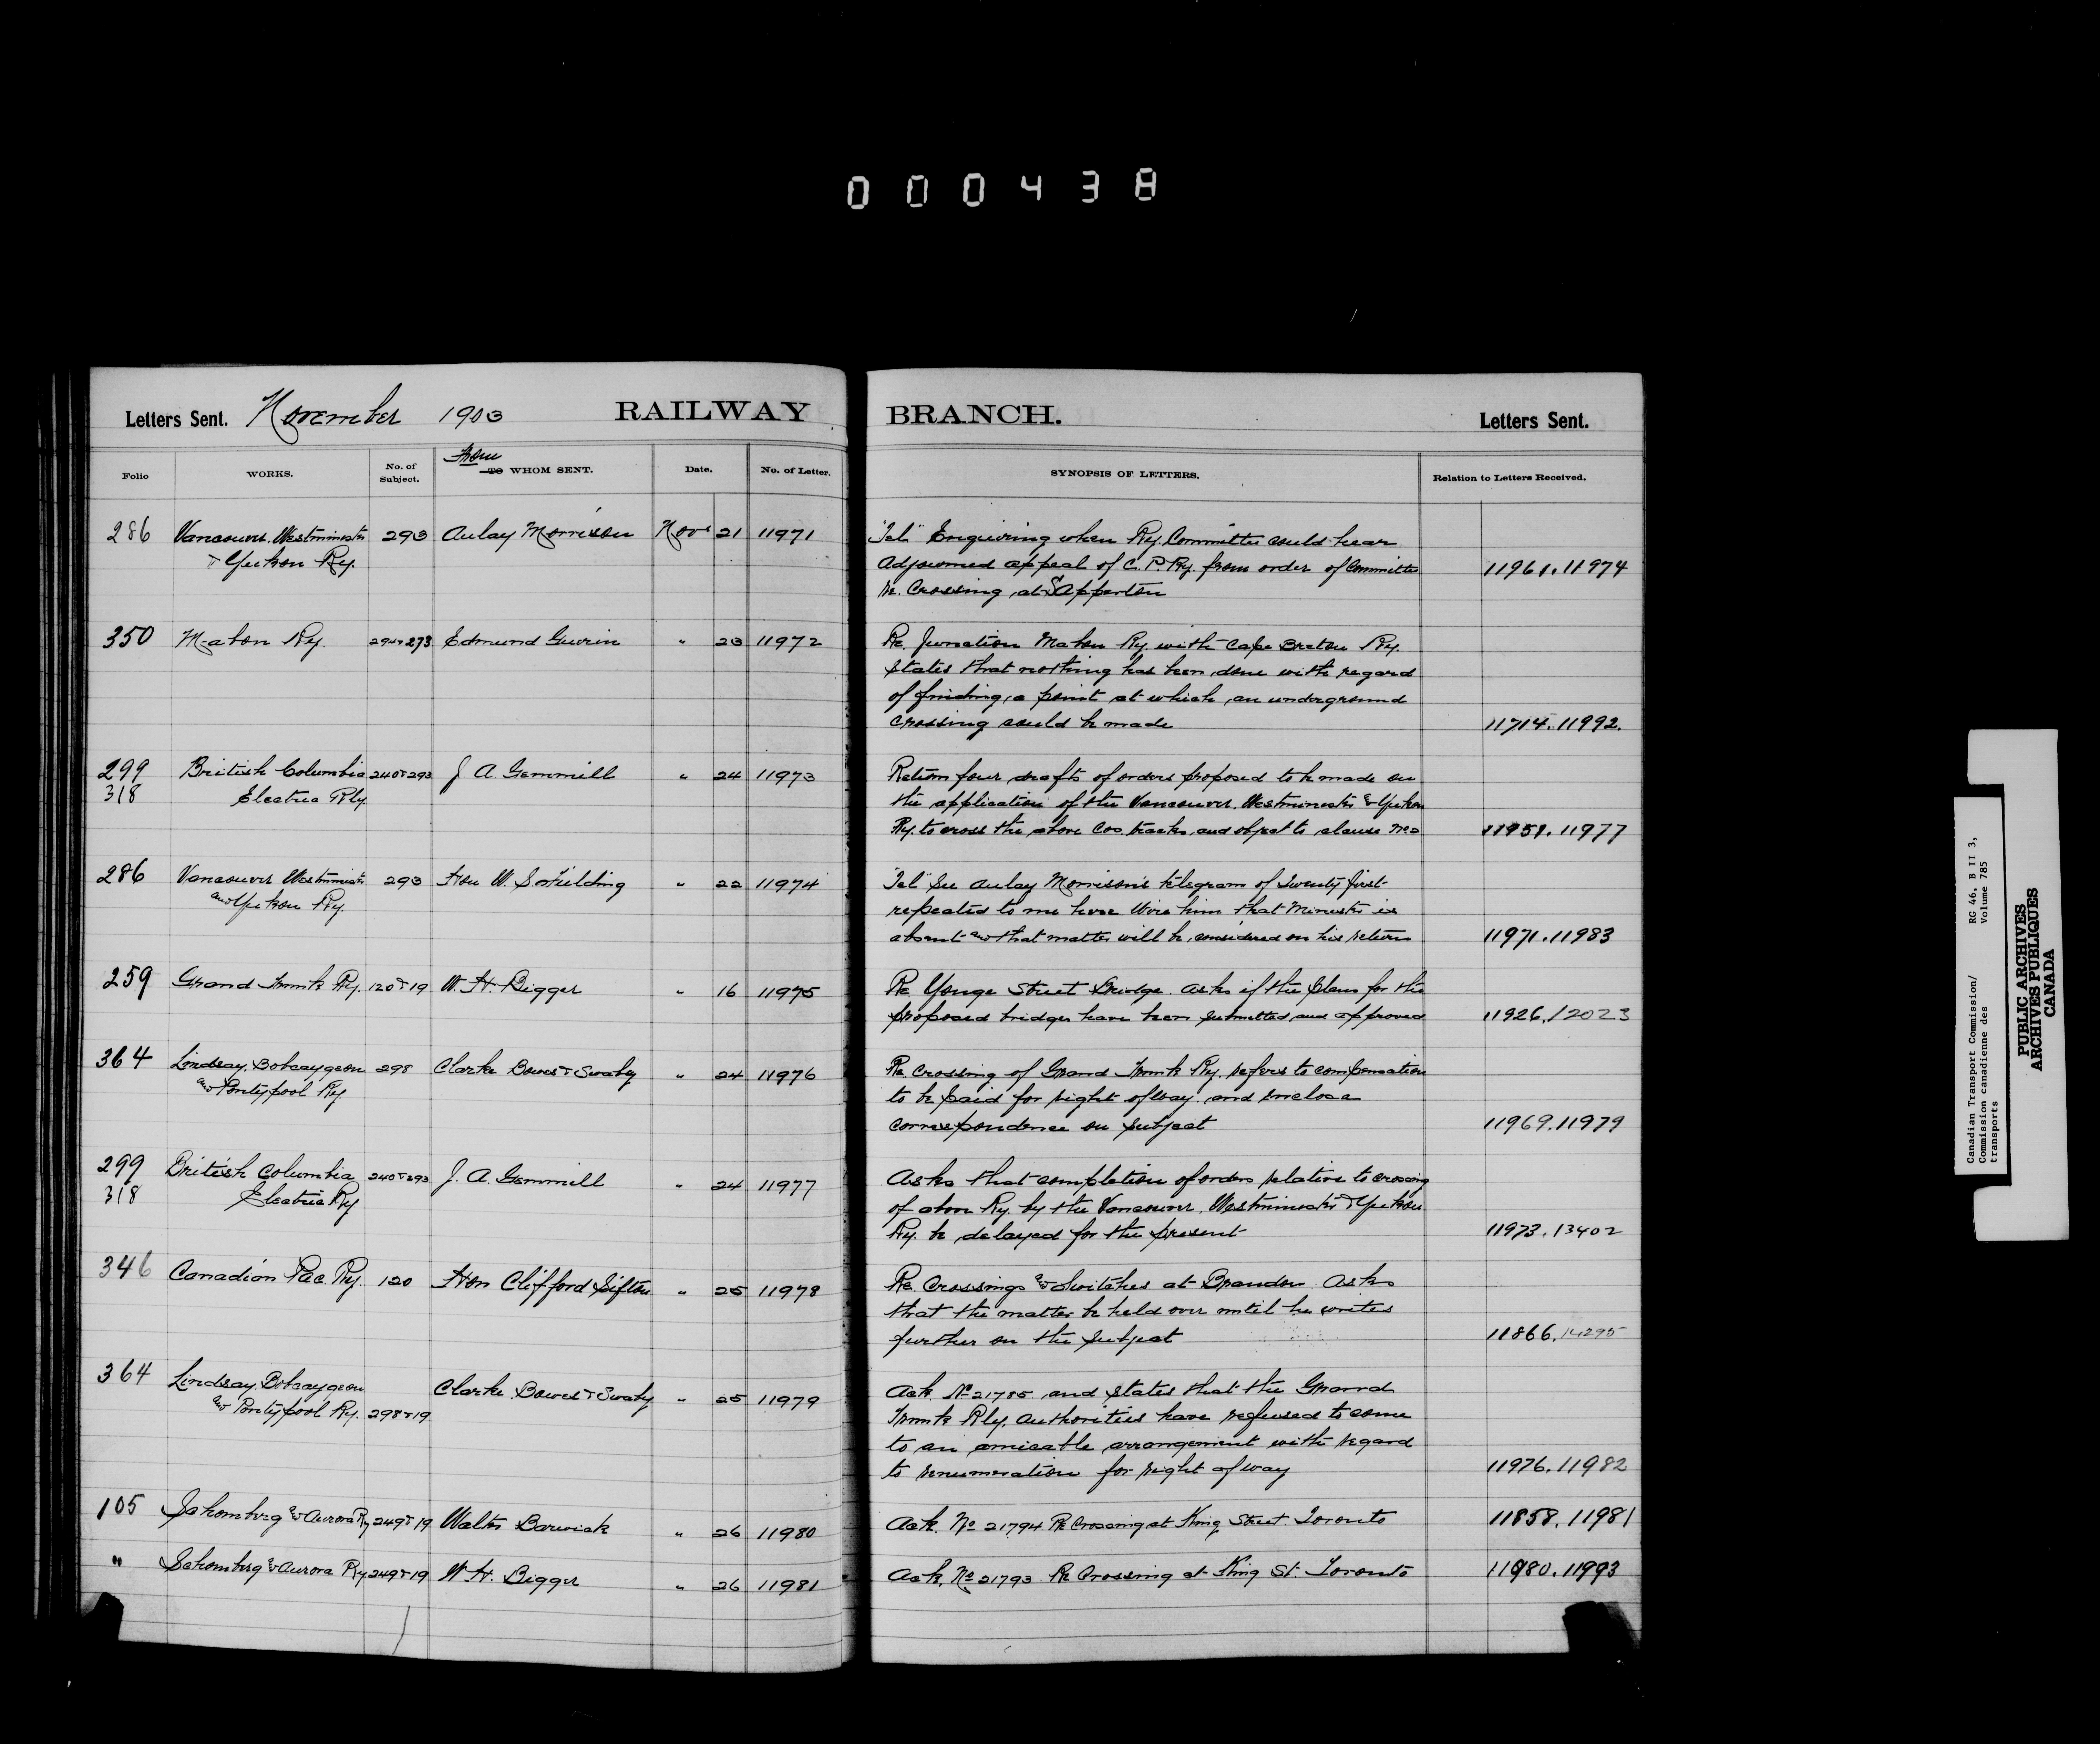 000438
Letters Sent. November 1903 RAILWAY BRANCH. Letters Sent.
Folio WORKS. No. of Subject. From TO WHOM SENT. Date. No. of Letter. SYNOPSIS OF LETTERS. Relation to Letters Received.
286 Vancouver. Westminster 293 Aulay Morrison Novr 21 11971 "Tel" Enquiring when Ry. Committee could hear
& Yukon Ry. adjourned appeal of C. P. Ry. from order of Committee 11961. 11974
Re. Crossing at Sapperton
350 Mabou Ry. 294 & 273 Edmund Guerin " 23 11972 Re. Junction Mabou Ry. with Cape Breton Ry.
States that nothing has been done with regard
of finding a point at which an underground
crossing could be made 11714. 11992.
299 British Columbia 240 & 293 J A Gemmill " 24 11973 Return four drafts of orders proposed to be made on
318 Electric Rly the application of the Vancouver. Westminster & Yukon
Ry. to cross the above Cos. tracks, and object to clause No 2 11951. 11977
286 Vancouver Westminster 293 Hon W. S. Fielding " 22 11974 "Tel" See Aulay Morrison's telegram of Twenty first
and Yukon Ry. repeated to me here Wire him that Minister is
absent and that matter will be considered on his return 11971. 11983
259 Grand Trunk Ry. 120 & 19 W. H. Bigger " 16 11975 Re Yonge Street Bridge. Asks if the plans for the
proposed bridges have been submitted and approved 11926. 12023
364 Lindsay. Bobcaygeon 298 Clarke Bowes & Swabey " 24 11976 Re. Crossing of Grand Trunk Ry. refers to compensation
and Pontypool Ry. to be paid for right of way and enclose
correspondence on subject 11969. 11979
299 British Columbia 240 & 293 J. A. Gemmill " 24 11977 Asks that completion of orders relative to crossing
318 Electric Ry of above Ry. by the Vancouver. Westminster & Yukon
Ry. be delayed for the present 11973. 13402
346 Canadian Pac. Ry. 120 Hon Clifford Sifton " 25 11978 Re. Crossings & Switches at Brandon. Asks
that the matter be held over until he writes
further on the subject 11866. 14295
364 Lindsay. Bobcaygeon Clarke. Bowes & Swabey " 25 11979 Ack. No 21785 and states that the Grand
and Pontypool Ry. 298 & 19 Trunk Rly. authorities have refused to come
to an amicable arrangement with regard
to renumeration for right of way 11976. 11982
105 Schomberg & Aurora Ry 249 & 19 Walter Barwick " 26 11980 Ack. No 21794 Re Crossing at King Street. Toronto 11858. 11981
" Schomberg & Aurora Ry 249 & 19 W. H. Bigger " 26 11981 Ack. No 21793 Re Crossing at King St. Toronto 11980. 11993
Canadian Transport Commission/ RG 46, B II 3,
Commission canadienne des Volume 785
transports
PUBLIC ARCHIVES
ARCHIVES PUBLIQUES
CANADA